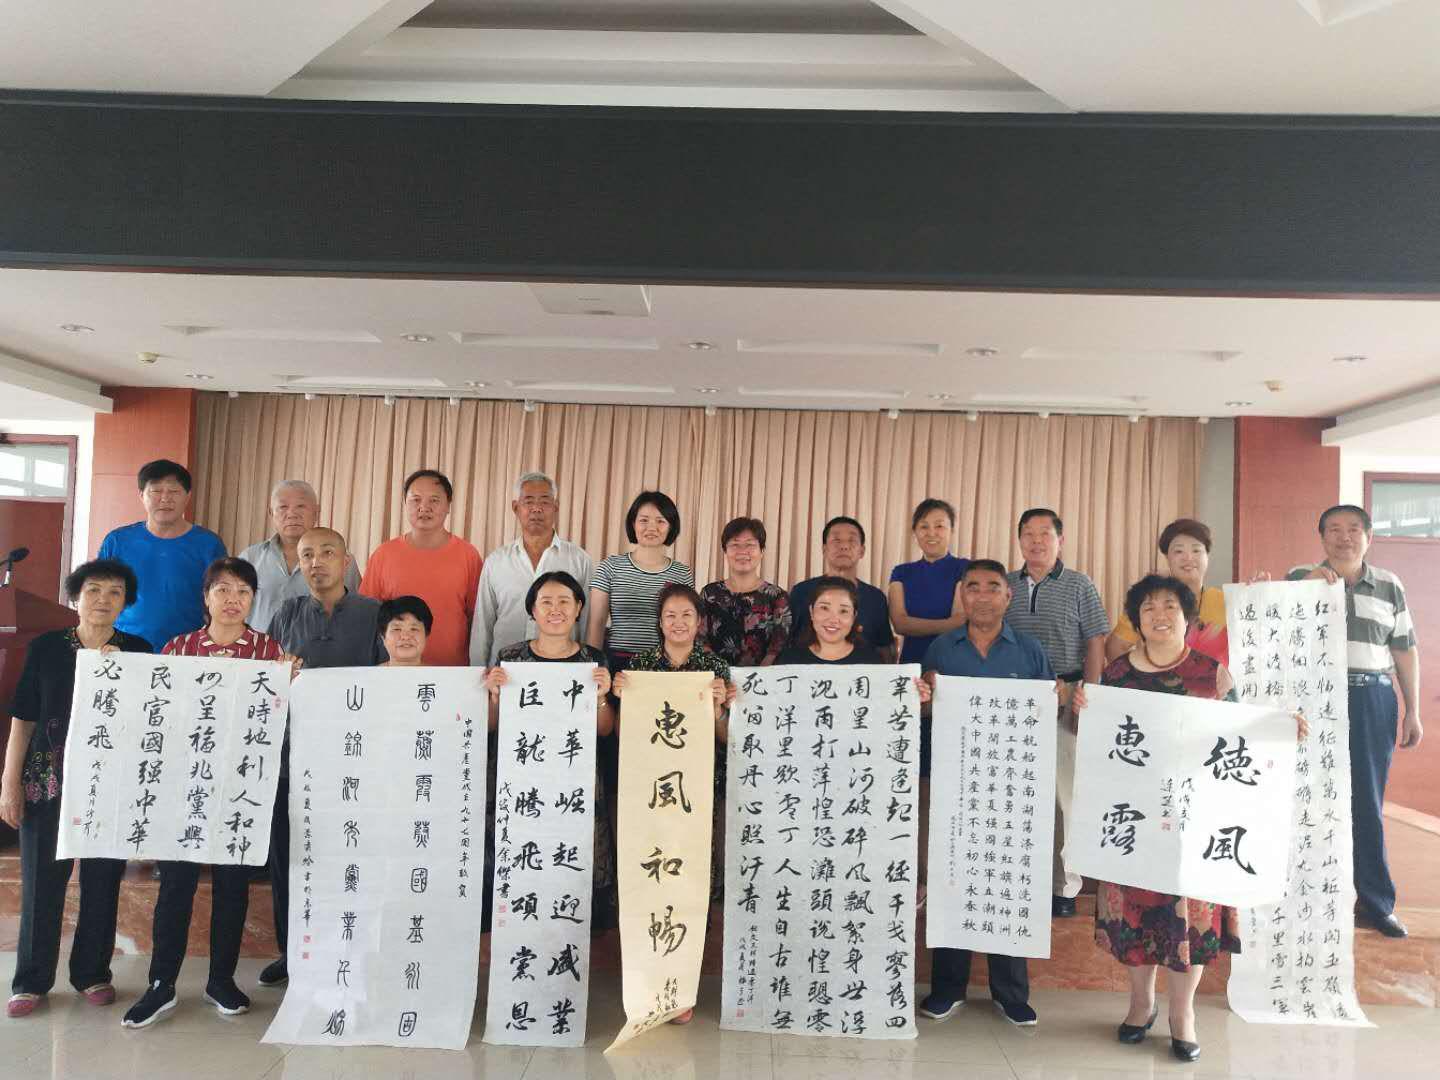 天時地利人和神
州呈福兆黨興
民富國强中華
必騰飛
中國共產黨成立九十七周年致賀
雲蔚霞蒸國基永固
山錦河秀黨業千秋
中華崛起迎盛業
巨龍騰飛頌黨恩
戊戌仲夏余傑書
惠風和暢
辛苦遭逢起一經干戈寥落四
周星山河破碎风飄絮身世浮
沉雨打萍惶恐灘頭說惶恐零
丁洋里歎零丁人生自古誰無
死留取丹心照汗青
革命航船起南湖蕩滌腐朽洗國仇
億萬工農齊奮勇五星紅旗遍神洲
改革開放富華夏强國強軍立潮頭
偉大中國共產黨不忘初心永春秋
德風
惠露
紅軍不怕遠征難萬水千山衹等閑五嶺逶
迤騰細浪磅礴走泥丸金沙水拍雲崖
暖大渡橋千里雪三軍
過後盡開